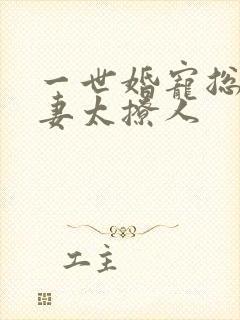 一世婚宠总
妻太撩人
工主